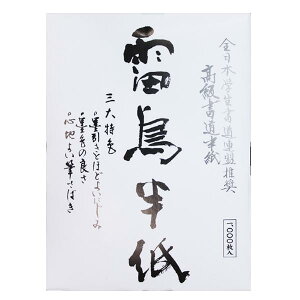 全日本学生書道連盟推奨
高級書道半紙
雷鳥半紙
三大特色
墨引きとほどよいにじみ
墨色の良さ
心地よい筆さばき
一、〇〇〇枚入